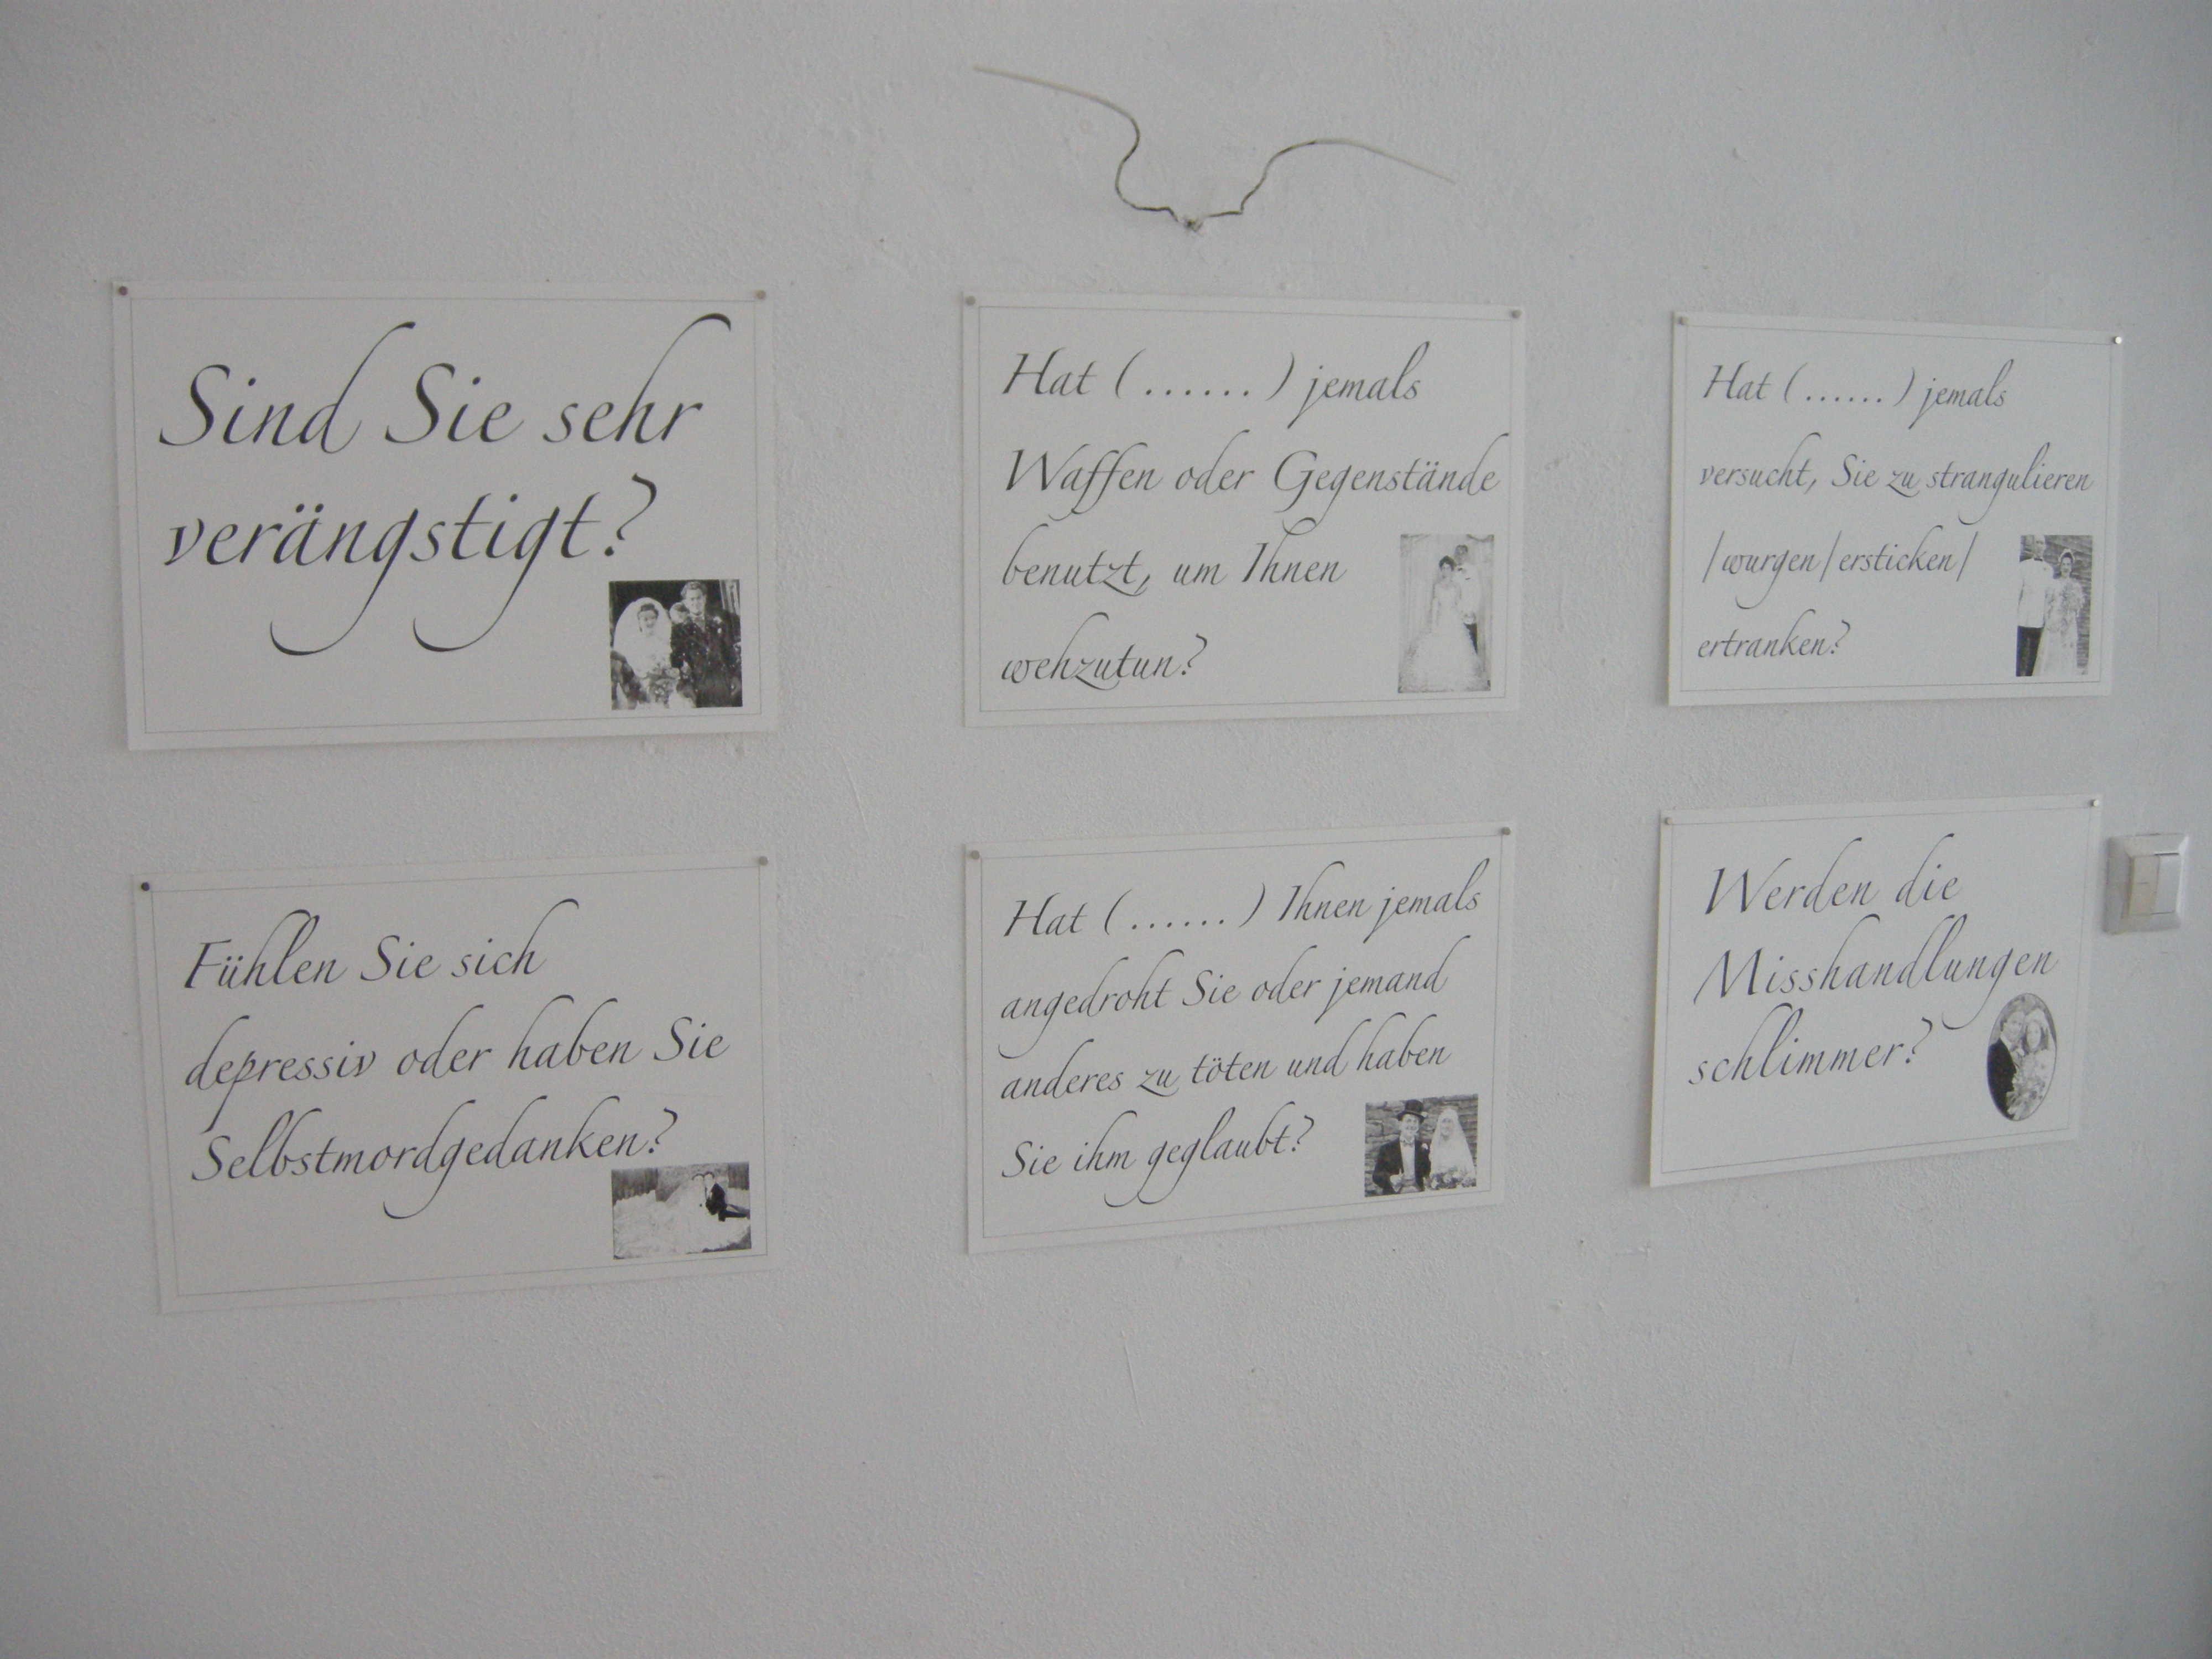 Sind Sie sehr
verängstigt?
Hat (......) jemals
Waffen oder Gegenstände
benutzt, um Ihnen
wehzutun?
Hat (......) jemals
versucht, Sie zu strangulieren
/wurgen/ersticken/
ertranken?
Fühlen Sie sich
depressiv oder haben Sie
Selbstmordgedanken?
Hat (......) Ihnen jemals
angedroht Sie oder jemand
anderes zu töten und haben
Sie ihm geglaubt?
Werden die
Misshandlungen
schlimmer?